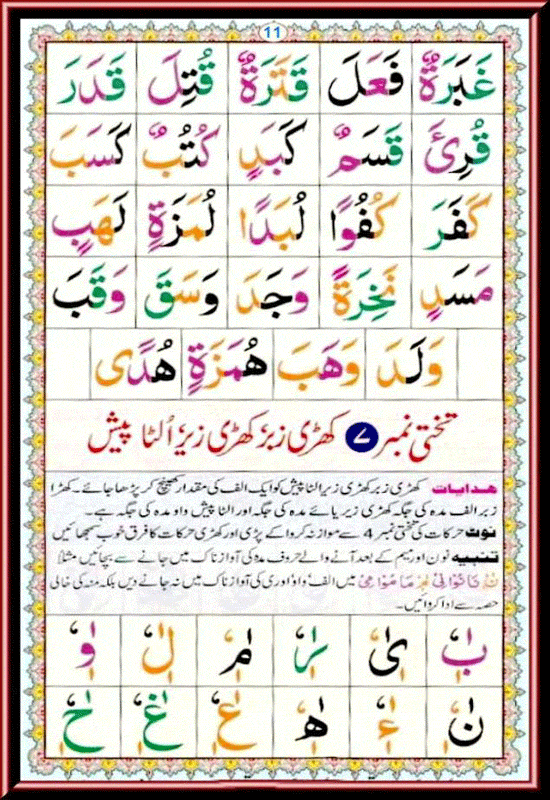 11
غَبَرَةٌ فَعَلَ قَتَرَةٌ قُتِلَ قَدَرَ
قُرِئَ قَسَمٌ كَبَدٍ كُتُبٌ كَسَبَ
كَفَرَ كُفُوًا لُبَدًا لُمَزَةٍ لَهَبٍ
مَسَدٍ نَخِرَةً وَجَدَ وَسَقَ وَقَبَ
وَلَدَ وَهَبَ هُمَزَةٍ هُدًى
تختی نمبر ۷ کھڑی زبر کھڑی زیر اُلٹا پیش
ھدایات کھڑی زبر کھڑی زیر الٹا پیش کو ایک الف کی مقدار کھینچ کر پڑھا جائے۔ کھڑا
زبر الف مدہ کی جگہ کھڑی زیر یائے مدہ کی جگہ اور الٹا پیش واو مدہ کی جگہ ہے۔
نوٹ حرکات کی تختی نمبر 4 سے موازنہ کروا کے پڑی اور کھڑی حرکات کا فرق خوب سمجھائیں
تنبیه نون اور میم کے بعد آنے والے حروف مدہ کی آواز ناک میں جانے سے بچائیں مثلاً
میں الف واؤ اور ی کی آواز ناک میں نہ جانے دیں بلکہ منہ کی خالی
حصہ سے ادا کروائیں۔
بٰٖٗ یٰٖٗ رٰٖٗ مٰٖٗ لٰٖٗ وٰٖٗ
نٰٖٗ ءٰٖٗ هٰٖٗ عٰٖٗ غٰٖٗ حٰٖٗ